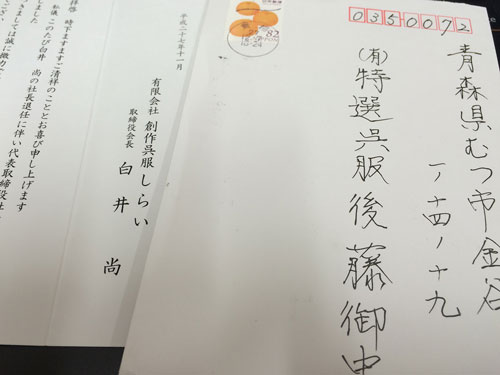 0350072
青森県むつ市金谷
一ノ十四ノ十九
(有)特選呉服後藤御中
82
平成二十七年十一月
有限会社 創作呉服しらい
取締役会長 白井 尚
拝啓 時下ますますご清祥のこととお喜び申し上げます
このたび白井 尚の社長退任に伴い代表取締役社
しました
つきましては誠に微力